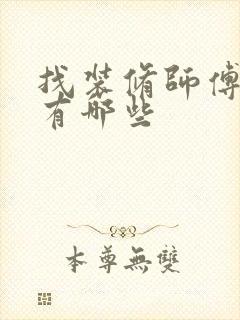 找装脩師傅
有哪些
本尊無雙